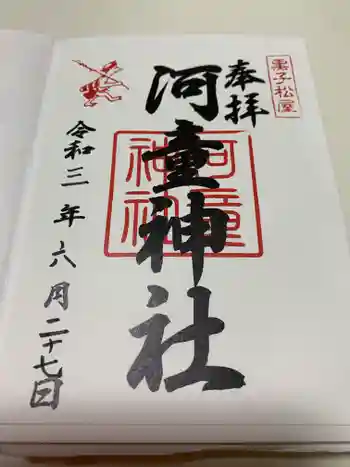 菓子松屋
奉拝
河童神社
河童
神社
令和三年六月二十七日